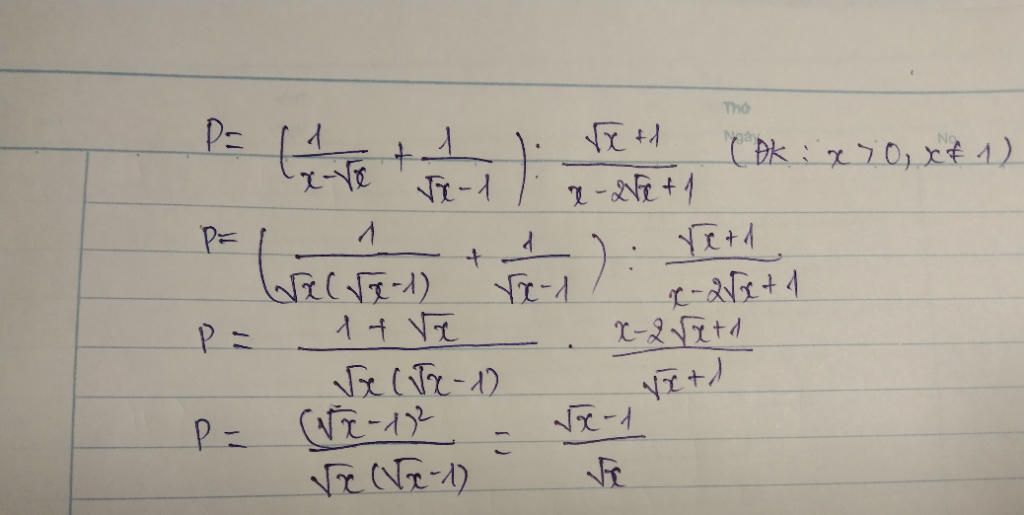 Thứ
Ngày No.
P= (1/(x-√x) + 1/(√x-1)) : (√x+1)/(x-2√x+1) (ĐK: x>0, x≠1)
P= (1/(√x(√x-1)) + 1/(√x-1)) : (√x+1)/(x-2√x+1)
P = (1+√x)/(√x(√x-1)) . (x-2√x+1)/(√x+1)
P = (√x-1)²/(√x(√x-1)) = (√x-1)/√x